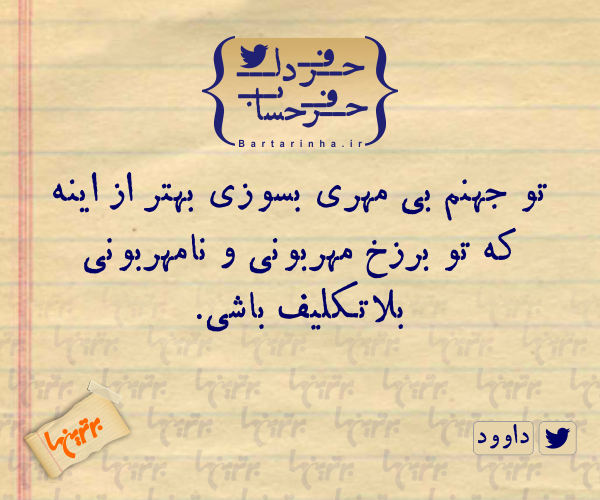 حرف دل
حرف حساب
Bartarinha.ir
تو جهنم بی مهری بسوزی بهتر از اینه
که تو برزخ مهربونی و نامهربونی
بلاتکلیف باشی.
برترین‌ها
داوود